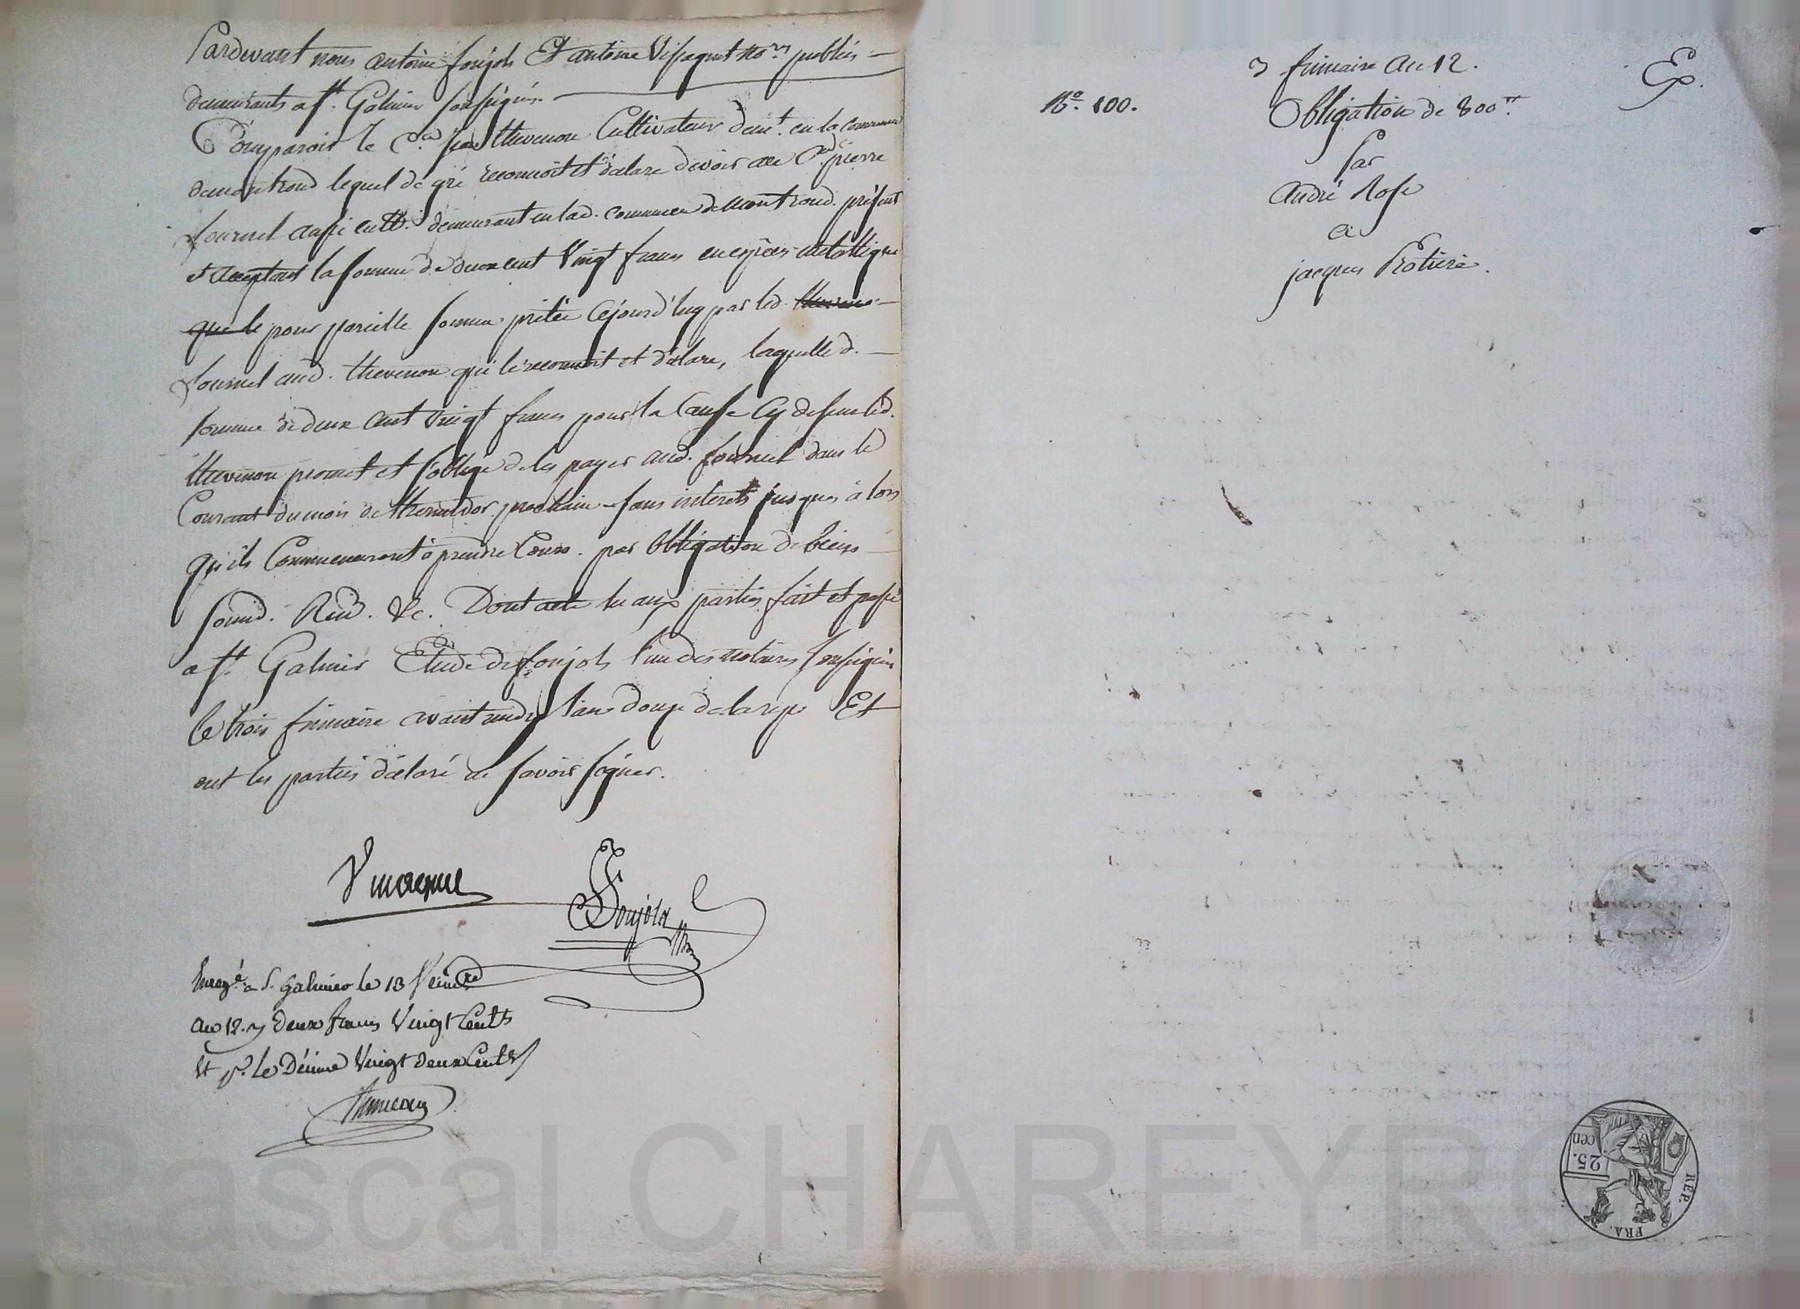 Pardevant nous antoine foujols Et antoine Vi publics
demeurants a st. Galmier soussignés.
Comparoit le Cen jean thevenon Cultivateur demt. en la commune
de montrond lequel de gré reconnoit et déclare devoir au Cen. pierre
fournel aussi cultr. demeurant en lad. commune de montrond. présent
et acceptant la somme de deux cent Vingt francs en espèces métallique
que le pour pareille somme pretée cejourd'huy par led. theveno
fournel aud. thevenon qui le reconnoit et déclare, laquelle d.
somme de deux cent Vingt francs pour la Cause Cy dessus led.
thevenon promet et s'oblige de les payer aud. fournel dans le
Courant du mois de thermidor prochain sans interets jusques à lors
qu'ils Commenceront à prendre Cours. par obligation de biens
soumd. Rend. &c. Dont acte lu aux parties fait et passé
a st. Galmier Etude de foujols l'un des notaires soussignés
le trois frimaire avant midy l'an douze de la rep. Et
ont les parties déclaré ne savoir signer.
foujols
Enregé. a S. Galmier le 13 frimre
an 12. Deux francs Vingt Cents
et pr. le Décime Vingt deux Cents
3 frimaire an 12.
Ep.
No. 100.
Obligation de 800tt
par
André Rose
a
jacques Protiere.
25.
cen
REP.
FRA.
Pascal CHAREYRO